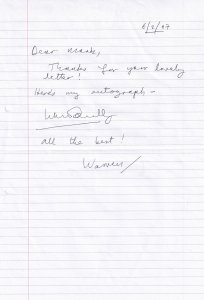 6/2/97
Dear Mark,
Thanks for your lovely
letter!
Here's my autograph -
all the best!
Warren